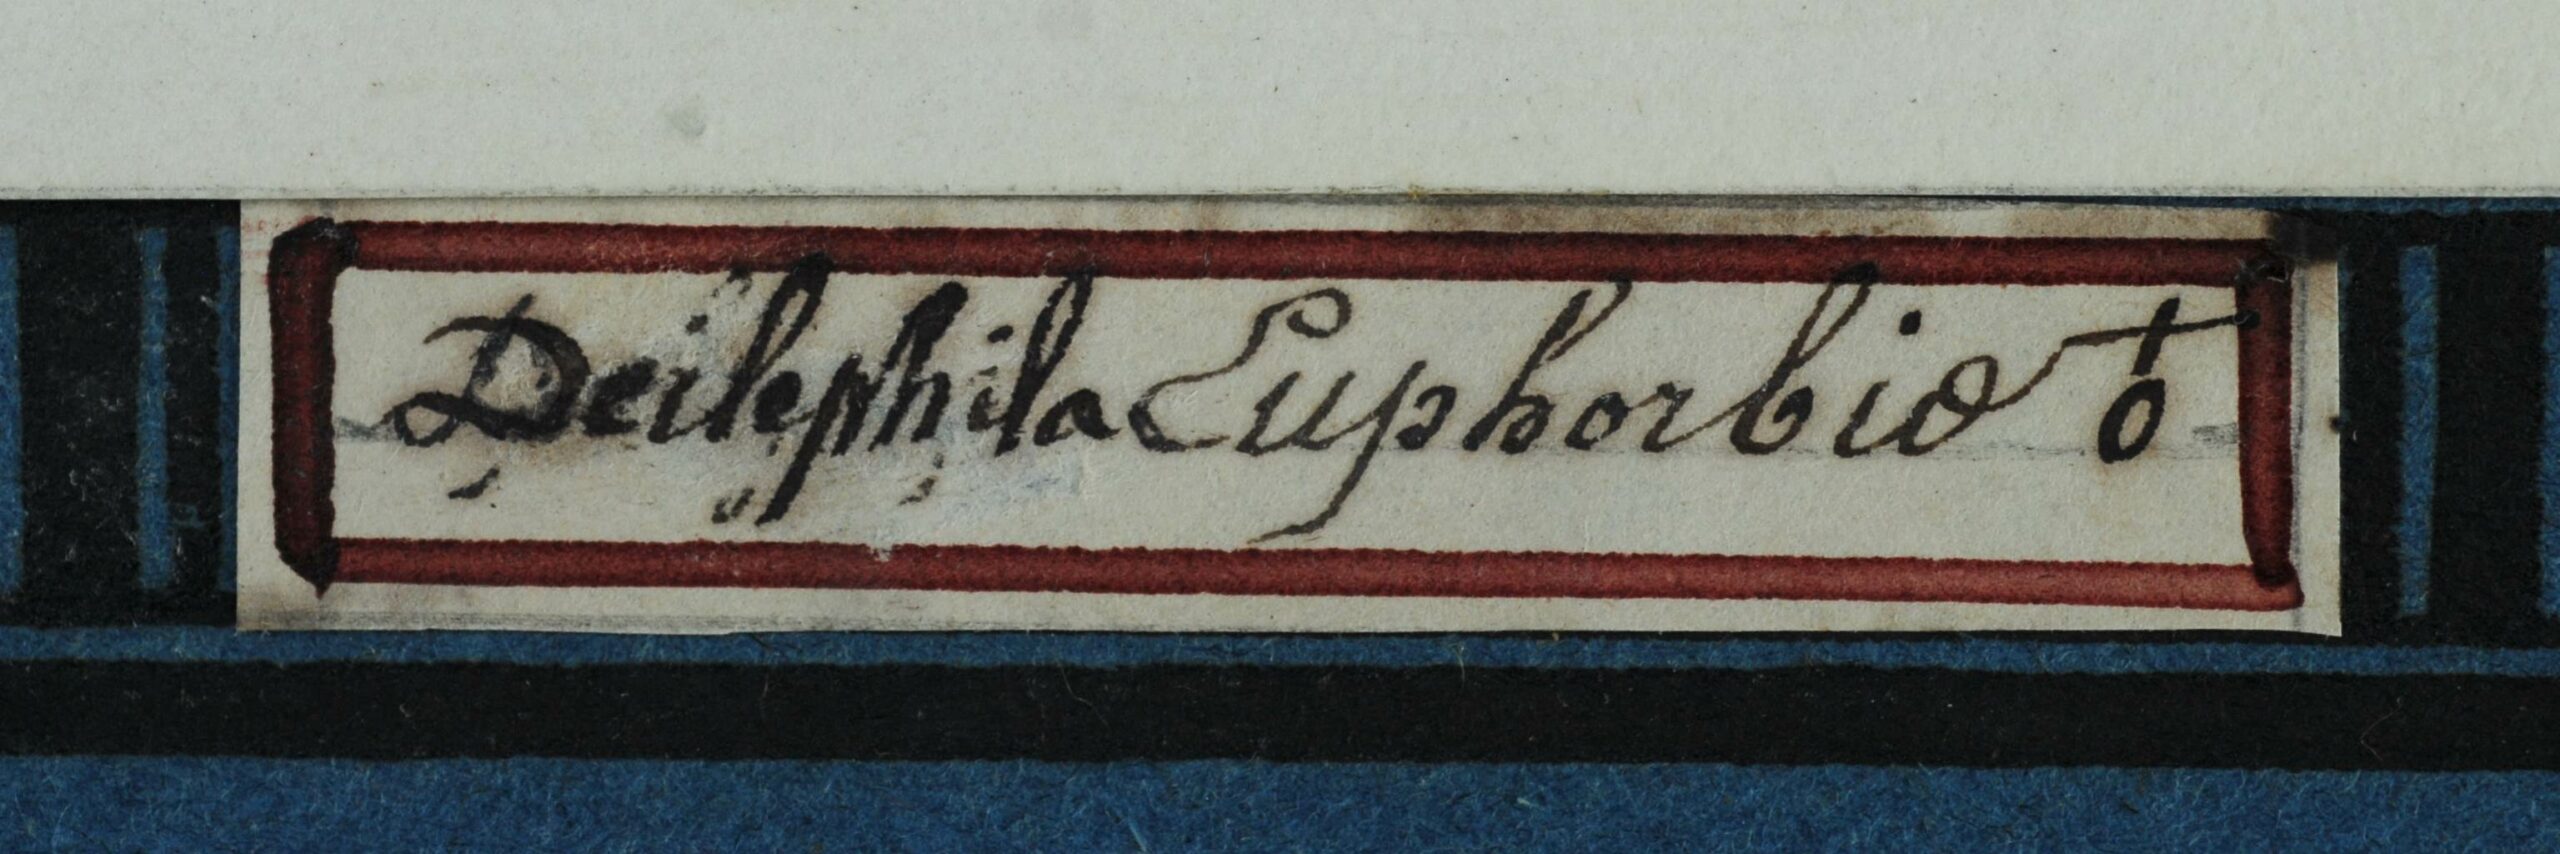 Deilephila Euphorbiæ ♂